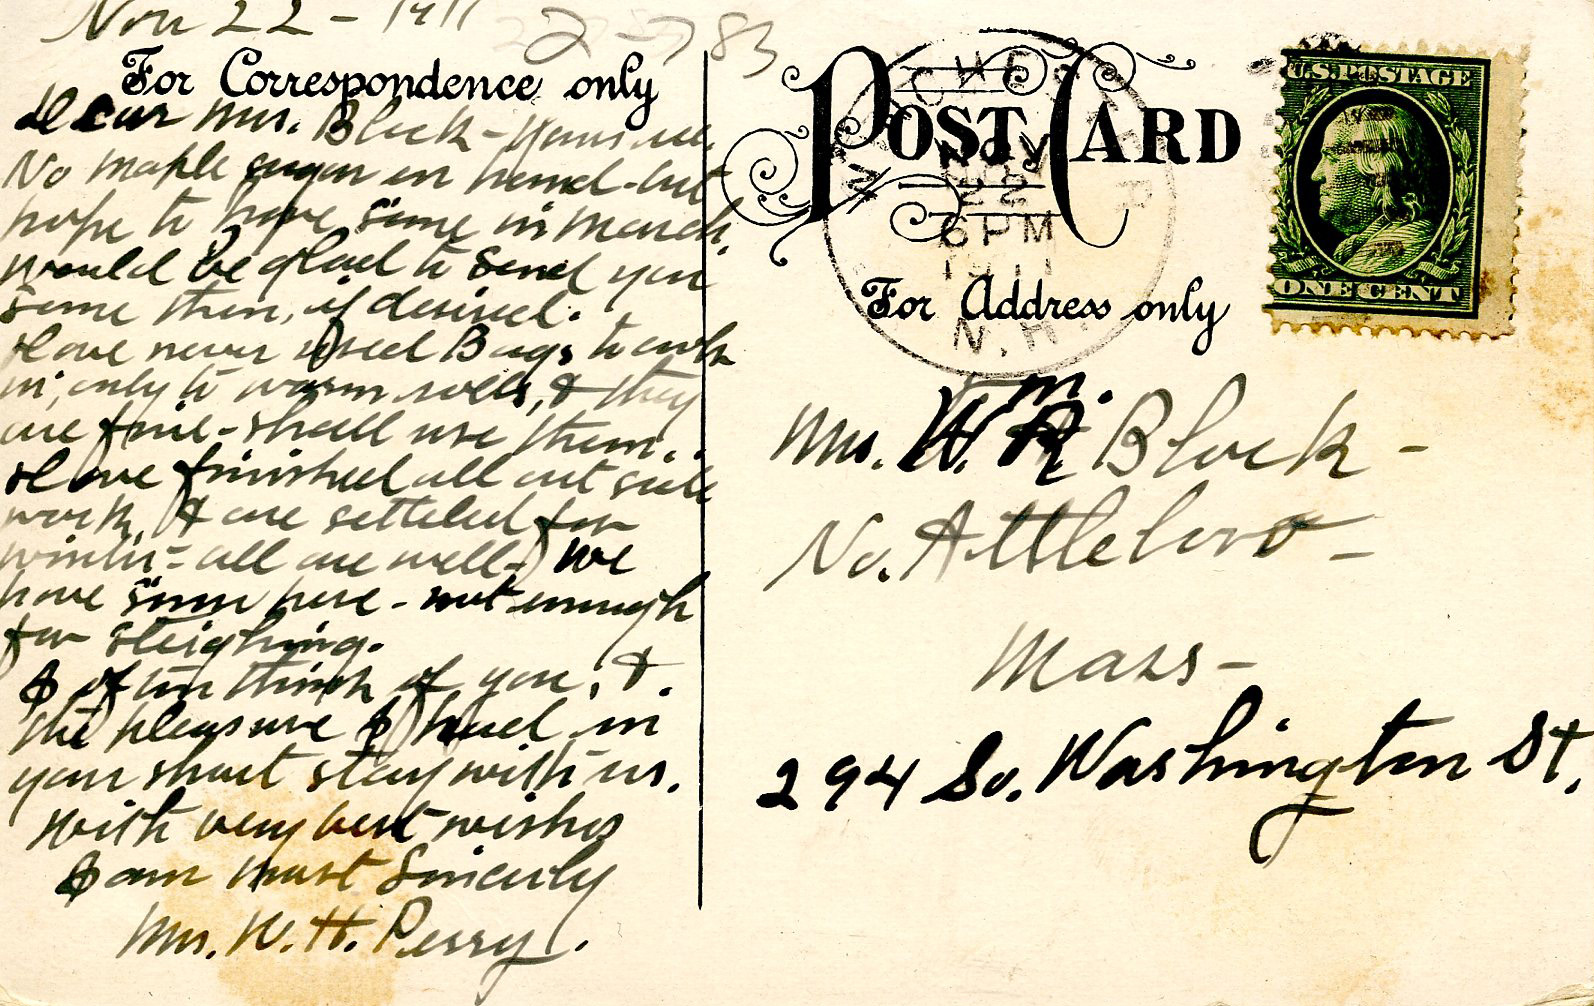 Nov 22 - 1911
For Correspondence only
Dear Mrs. Block - Yours rec.
No maple sugar on hand - but
hope to have some in March.
Would be glad to send you
some then, if desired.
Have never used Bags to cook
in, only to warm rolls, & they
are fine - shall use them.
Have finished all out side
work, & are settled for
winter - all are well - we
have snow here - not enough
for sleighing.
I often think of you, &
the pleasure I had in
your short stay with us.
With very best wishes
I am most Sincerely
Mrs. W. H. Perry.
POST CARD
For Address only
NOV
22
6 PM
1911
N.H.
U.S. POSTAGE
ONE CENT
Mrs. Wm. Block -
No. Attleboro -
Mass -
294 So. Washington St.